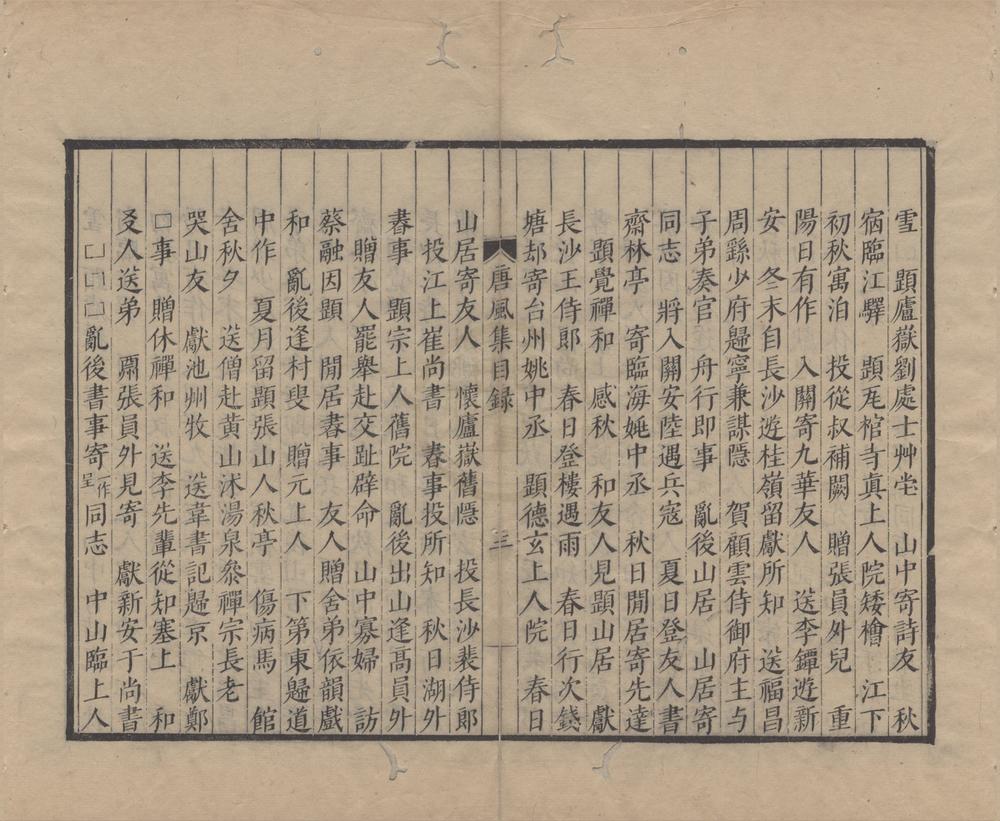 雪　題廬嶽劉處士艸堂　山中寄詩友　秋
宿臨江驛　題瓦棺寺真上人院矮檜　江下
初秋寓泊　投從叔補闕　贈張員外兒　重
陽日有作　入關寄九華友人　送李鐔遊新
安　冬末自長沙遊桂嶺留獻所知　送福昌
周繇少府歸寧兼謀隱　賀顧雲侍御府主与
子弟奏官　舟行即事　亂後山居　山居寄
同志　將入關安陸遇兵寇　夏日登友人書
齋林亭　寄臨海姚中丞　秋日閒居寄先達
題覺禪和　感秋　和友人見題山居　獻
長沙王侍郎　春日登樓遇雨　春日行次錢
塘却寄台州姚中丞　題德玄上人院　春日
唐風集目録　三
山居寄友人　懷廬嶽舊隱　投長沙裴侍郎
投江上崔尚書　春事投所知　秋日湖外
書事　題宗上人舊院　亂後出山逢高員外
贈友人罷舉赴交趾辟命　山中寡婦　訪
蔡融因題　閒居書事　友人贈舍弟依韻戲
和　亂後逢村叟　贈元上人　下第東歸道
中作　夏月留題張山人秋亭　傷病馬　館
舍秋夕　送僧赴黄山沐湯泉叅禪宗長老
哭山友　獻池州牧　送韋書記歸京　獻鄭
□事　贈休禪和　送李先輩從知塞上　和
友人送弟　酬張員外見寄　獻新安于尚書
□□□亂後書事寄一作呈同志　中山臨上人